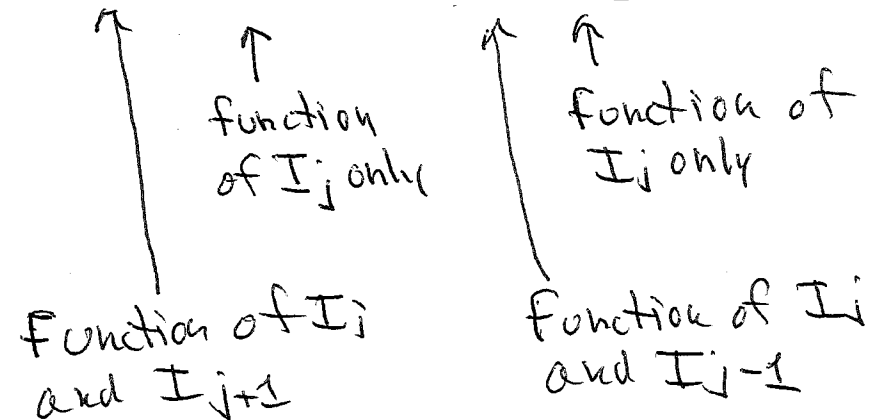 function
of Ij only
function of
Ij only
Function of Ij
and Ij+1
Function of Ij
and Ij-1